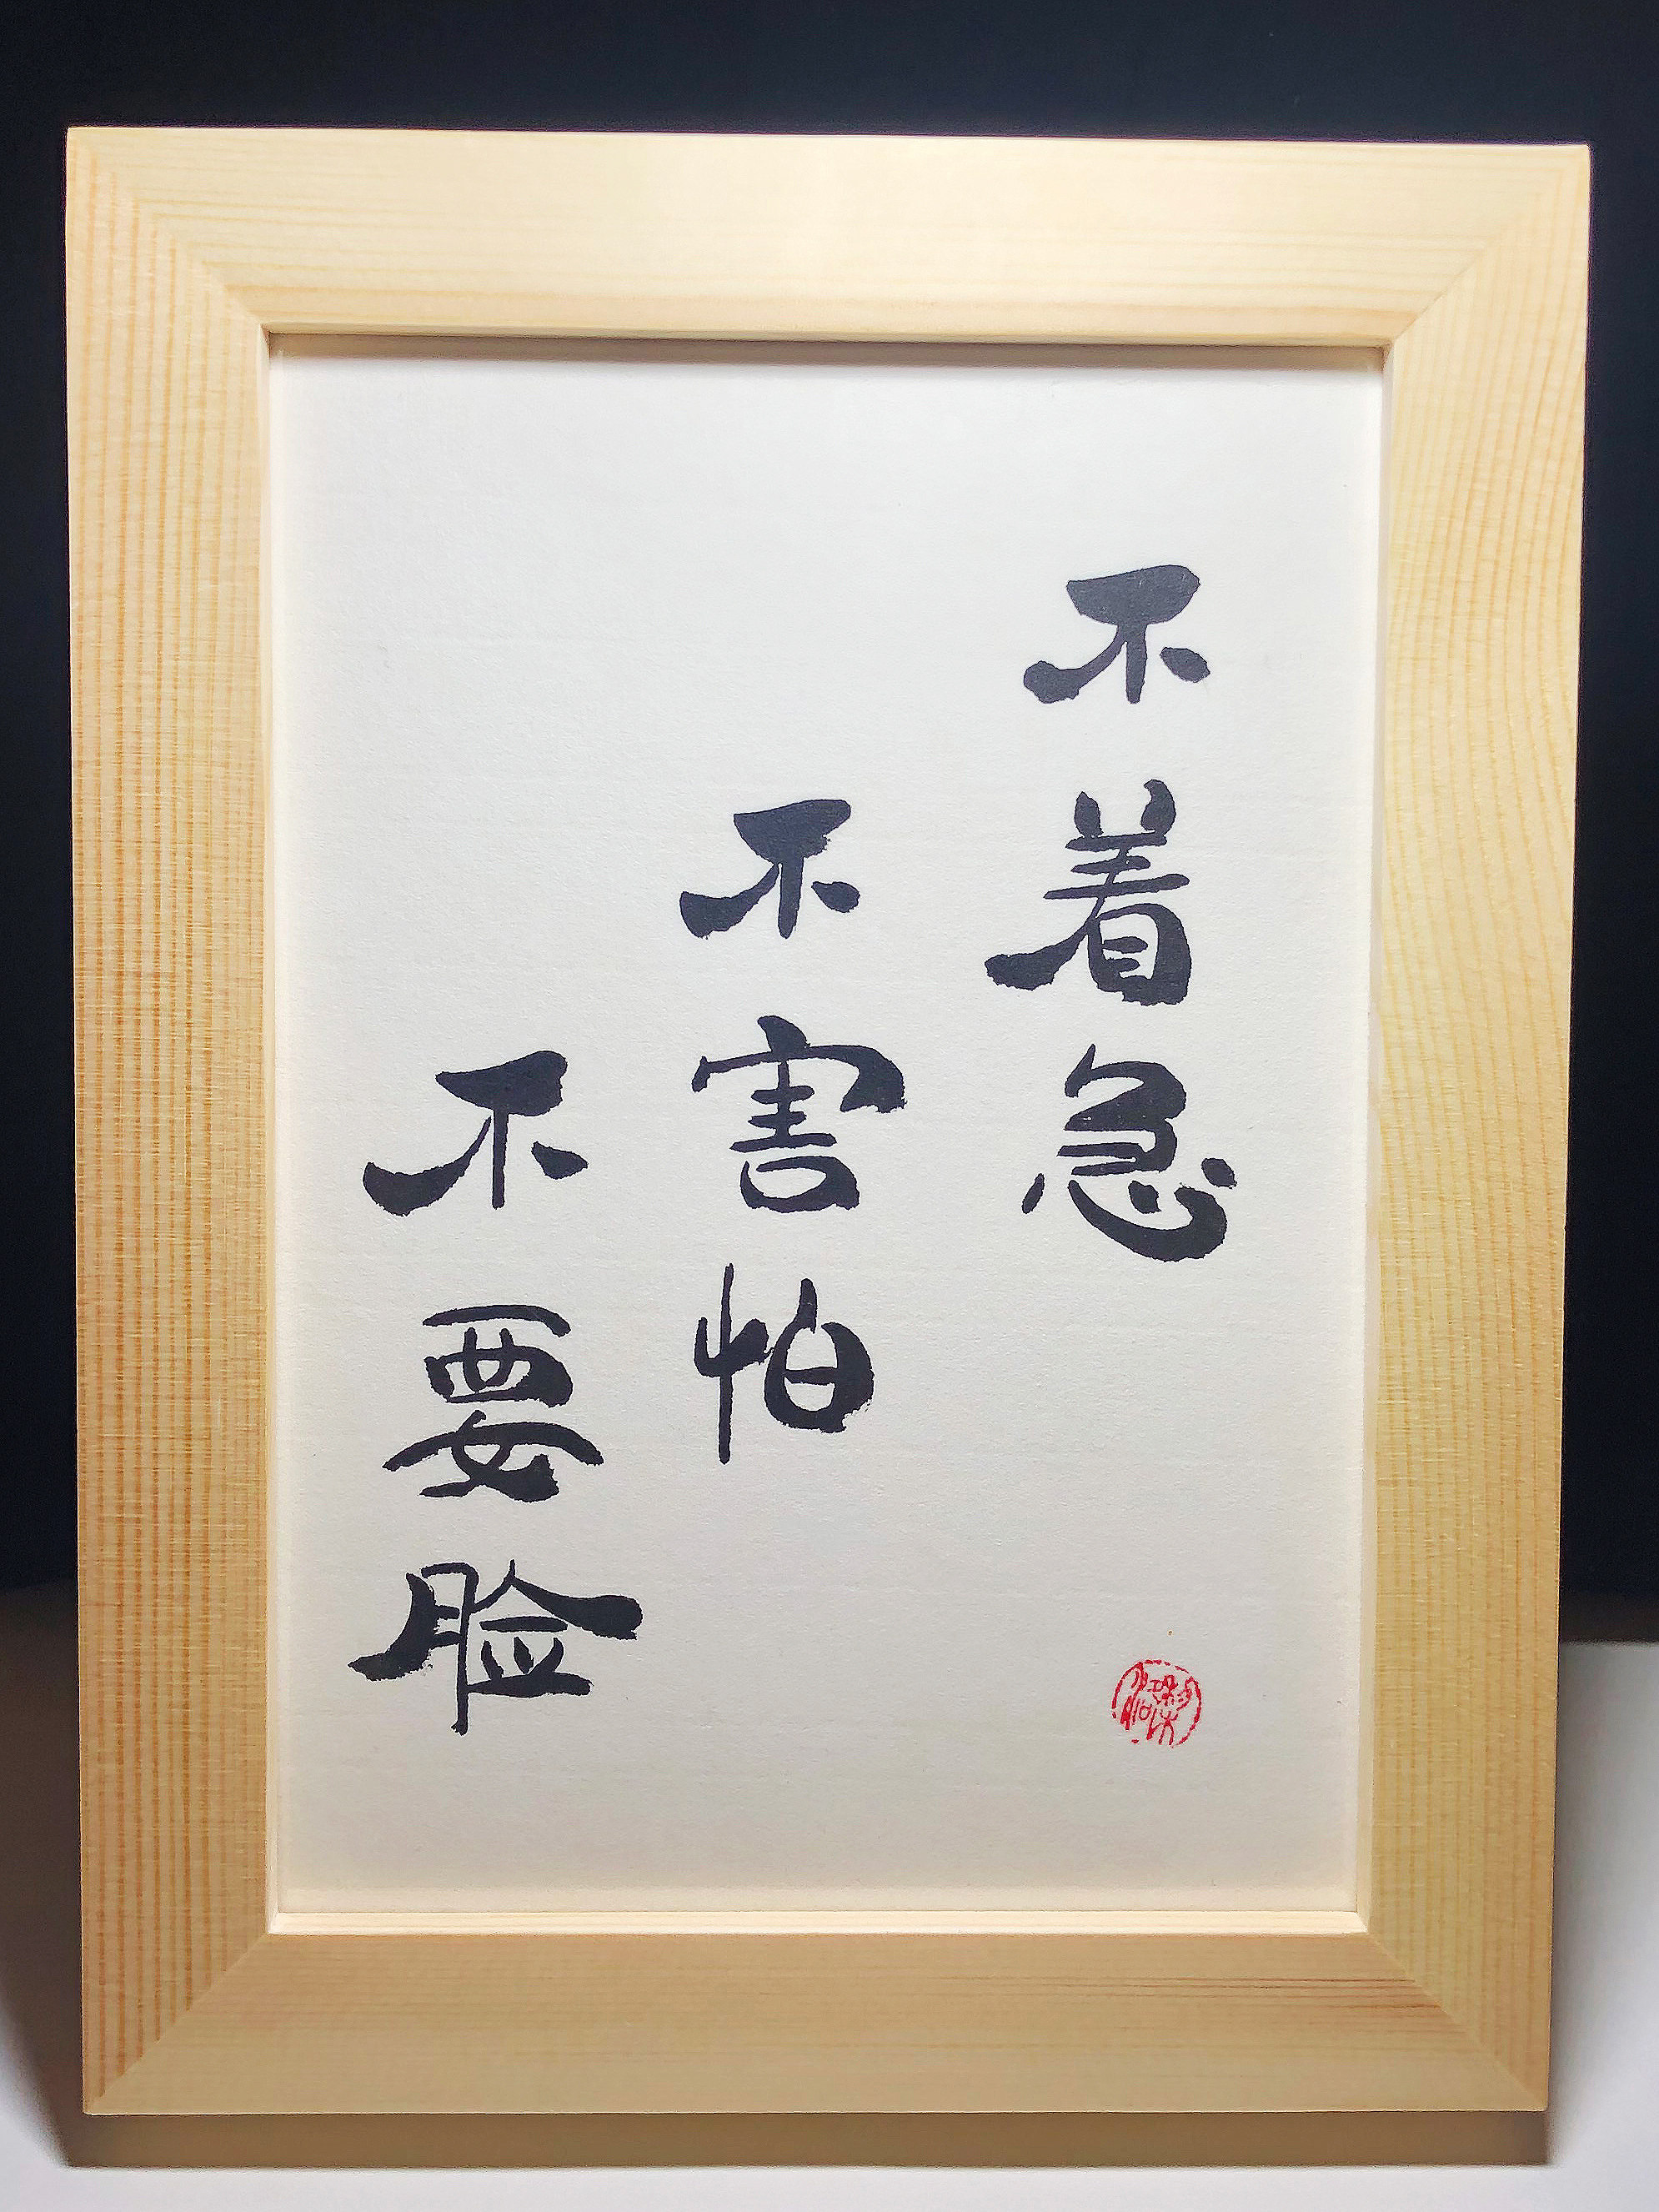 不着急
不害怕
不要脸